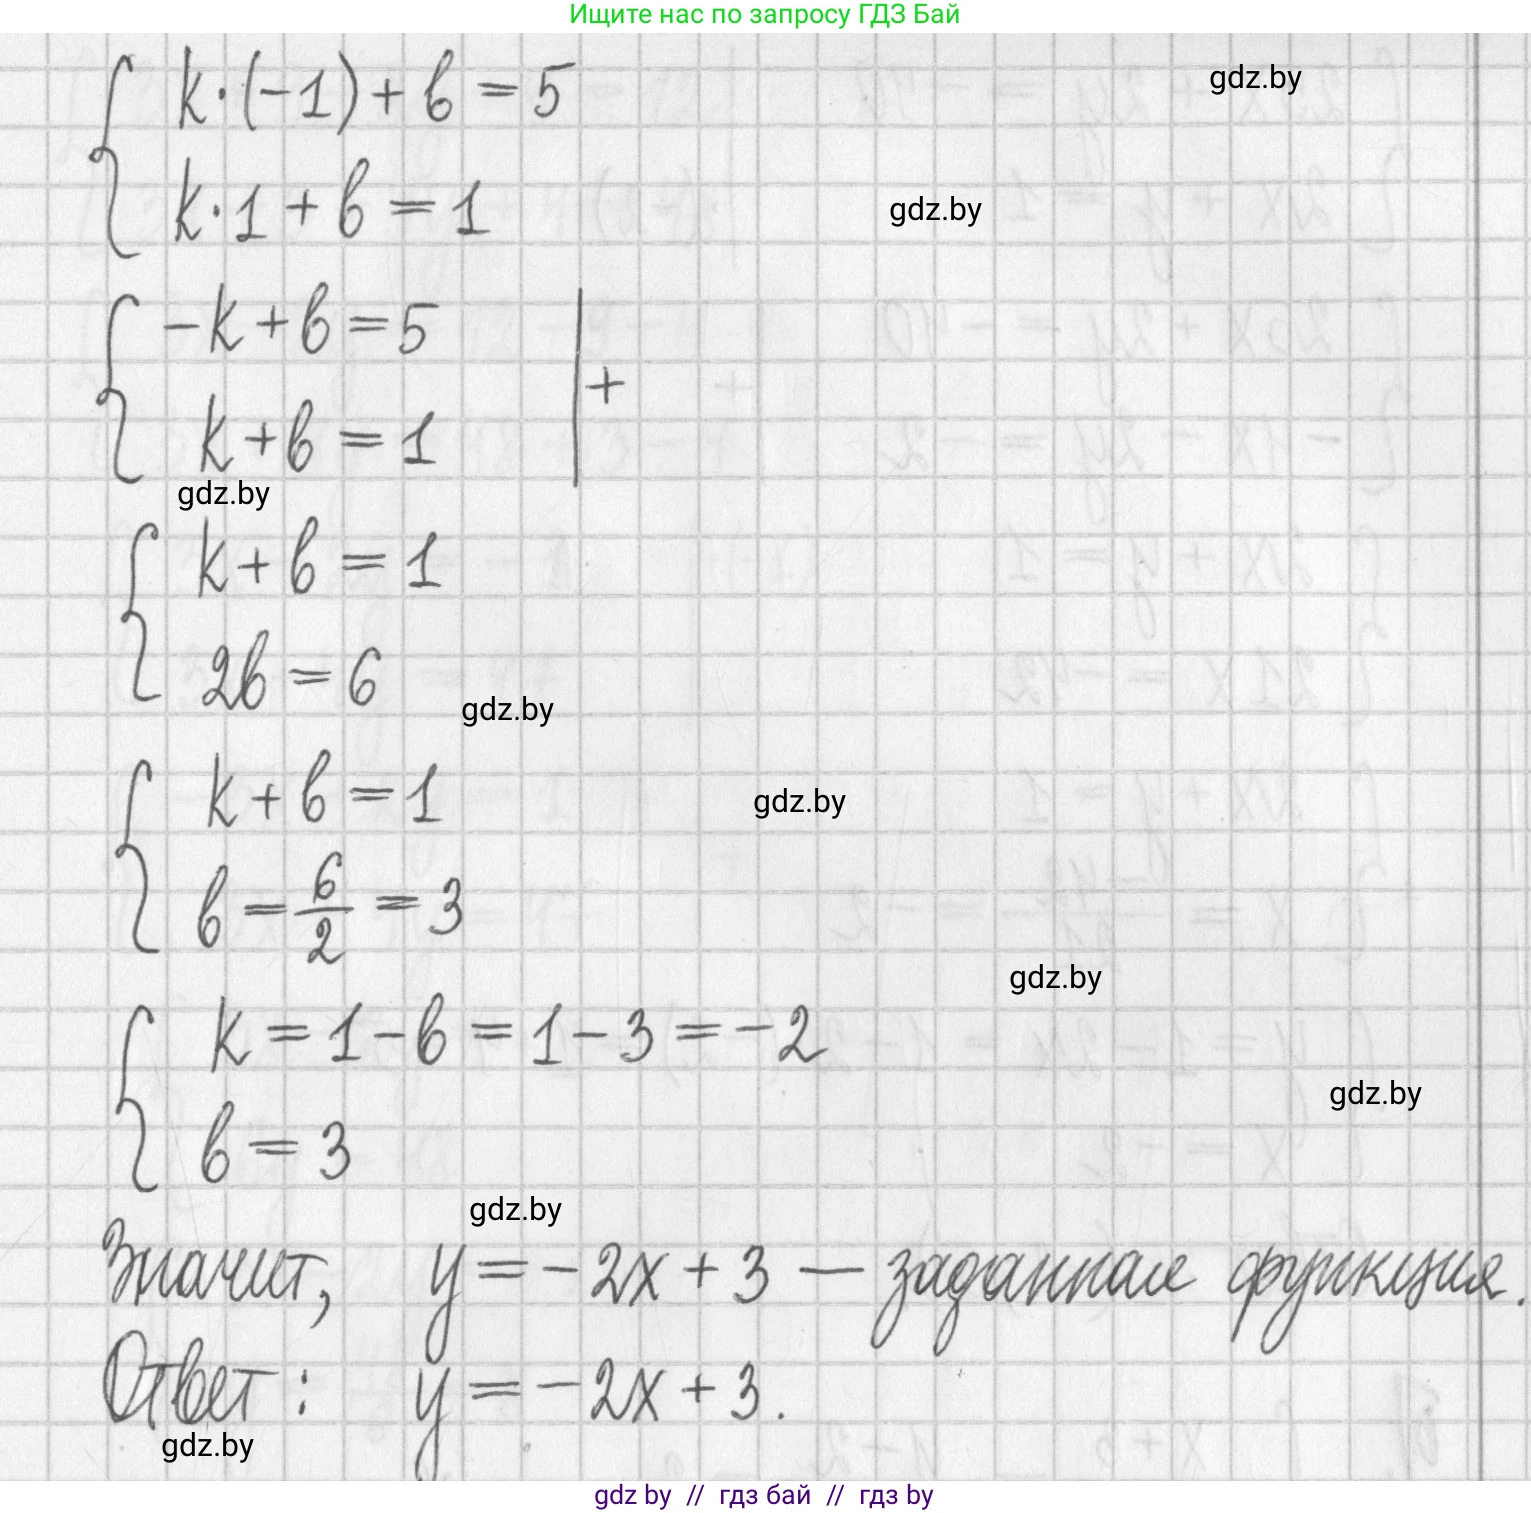 Ищите нас по запросу ГДЗ Бай
k·(-1)+b=5
gdz.by
k·1+b=1
gdz.by
-k+b=5
+
k+b=1
gdz.by
k+b=1
2b=6
gdz.by
k+b=1
gdz.by
b=6/2=3
gdz.by
k=1-b=1-3=-2
gdz.by
b=3
gdz.by
Значит, y=-2x+3 — заданная функция.
Ответ: y=-2x+3.
gdz.by
gdz by // гдз бай // гдз by